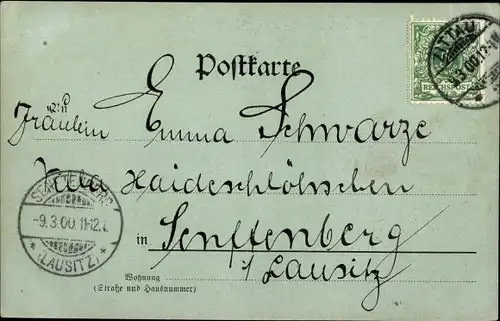 Postkarte
REICHSPOST
ZITTAU
9.3.00.12-
An
Fräulein Emma Schwarze
SENFTENBERG
-9.3.00.11-12.V.
* (LAUSITZ) *
Villa Haideschlösschen
in Senftenberg
i/Lausitz
Wohnung
(Straße und Hausnummer)